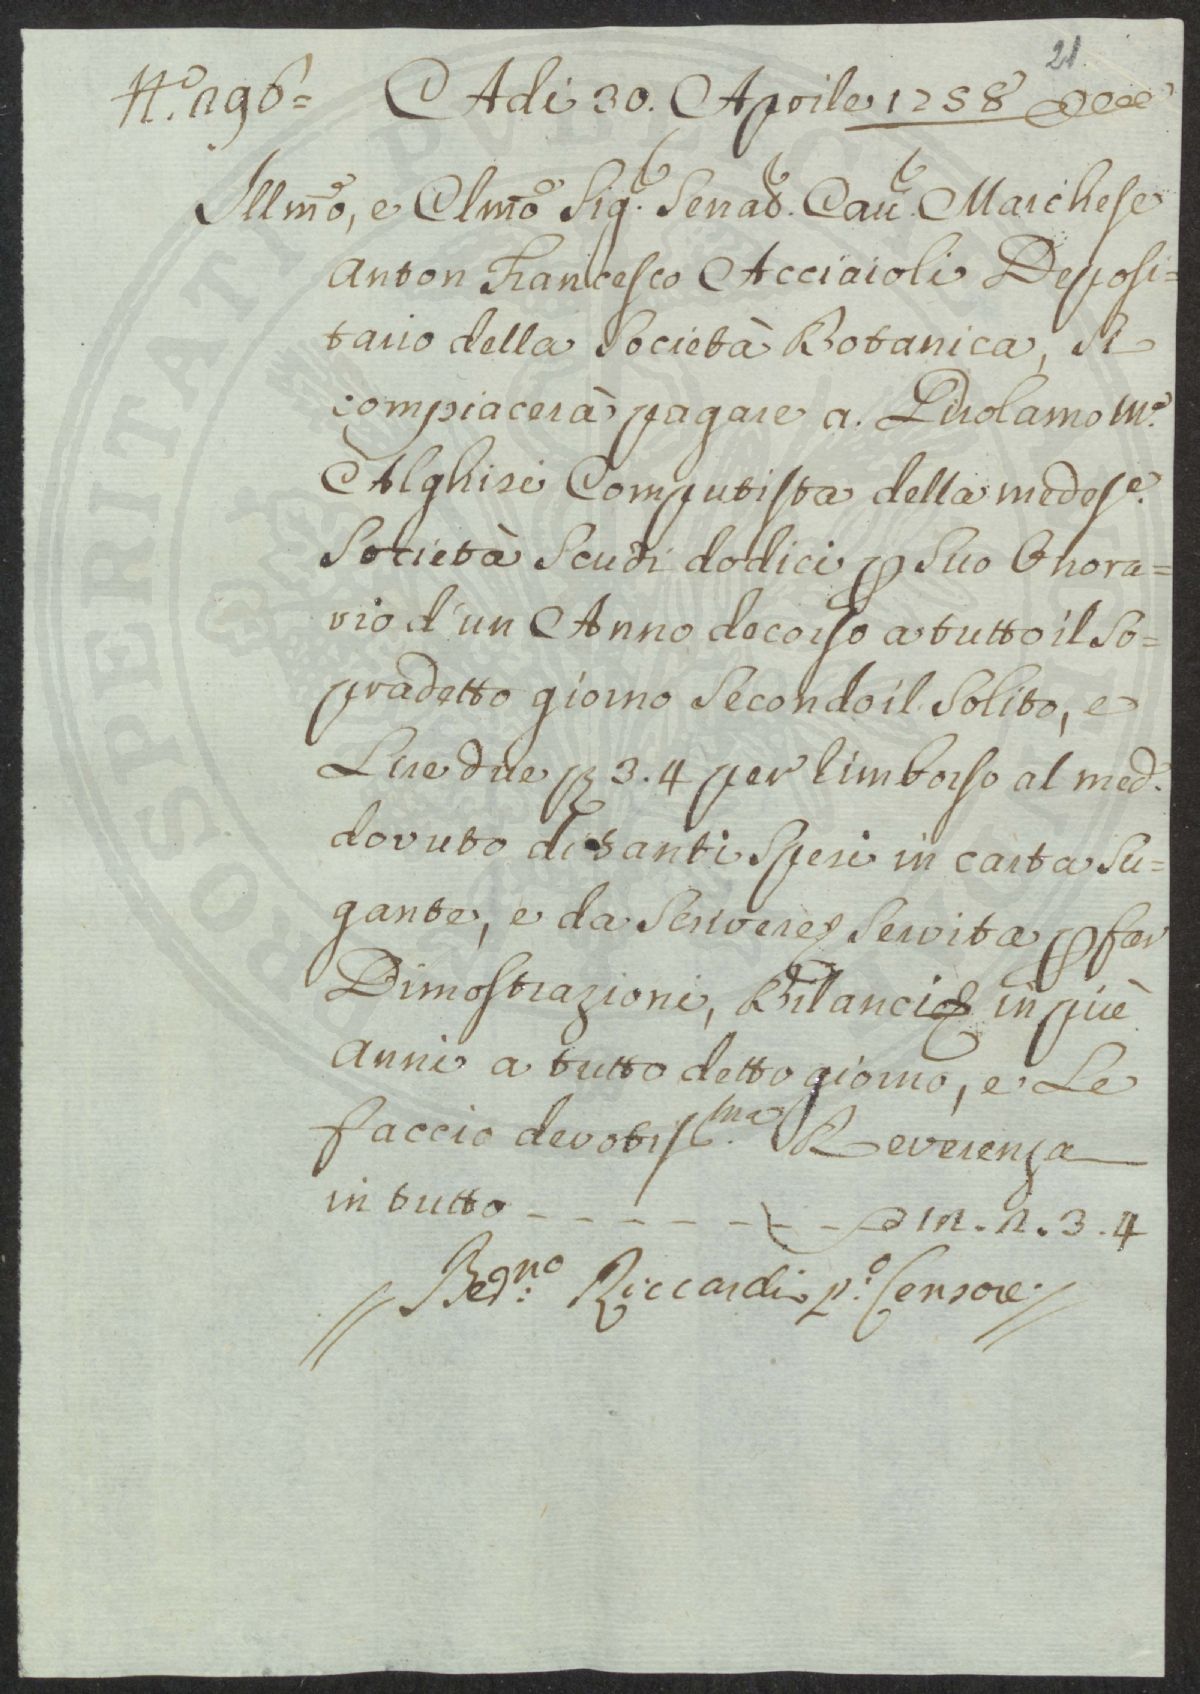 21
N.º 296= Adi 30. Aprile 1758
Illmo, e Clmo Sigr. Senat. Cav. Marchese
Anton Francesco Acciaioli Deposi=
tario della Società Botanica, Si
compiacerà pagare a. Girolamo Ma.
Alghisi Computista della medesa.
Società Scudi dodici p Suo Onora=
rio d'un Anno decorso a tutto il So=
pradetto giorno Secondo il Solito, e
Lire due p 3.4 per rimborso al med.
dovuto di tanti Spesi in carta Su=
gante, e da Scrivere Servita p far
Dimostrazioni, Bilanci in più
Anni a tutto detto giorno, e Le
faccio devotissma. Reverenza
in tutto - - - - - - - - 12.2.3.4
Bedno: Riccardi po: Censore
PROSPERITATI PVBLICAE